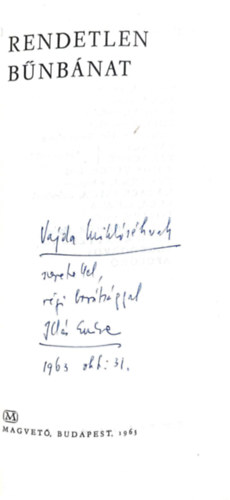 RENDETLEN
BŰNBÁNAT
Vajda Miklóséknak
szeretettel,
régi barátsággal
Illés Endre
1963 okt. 31.
M
MAGVETŐ, BUDAPEST, 1963